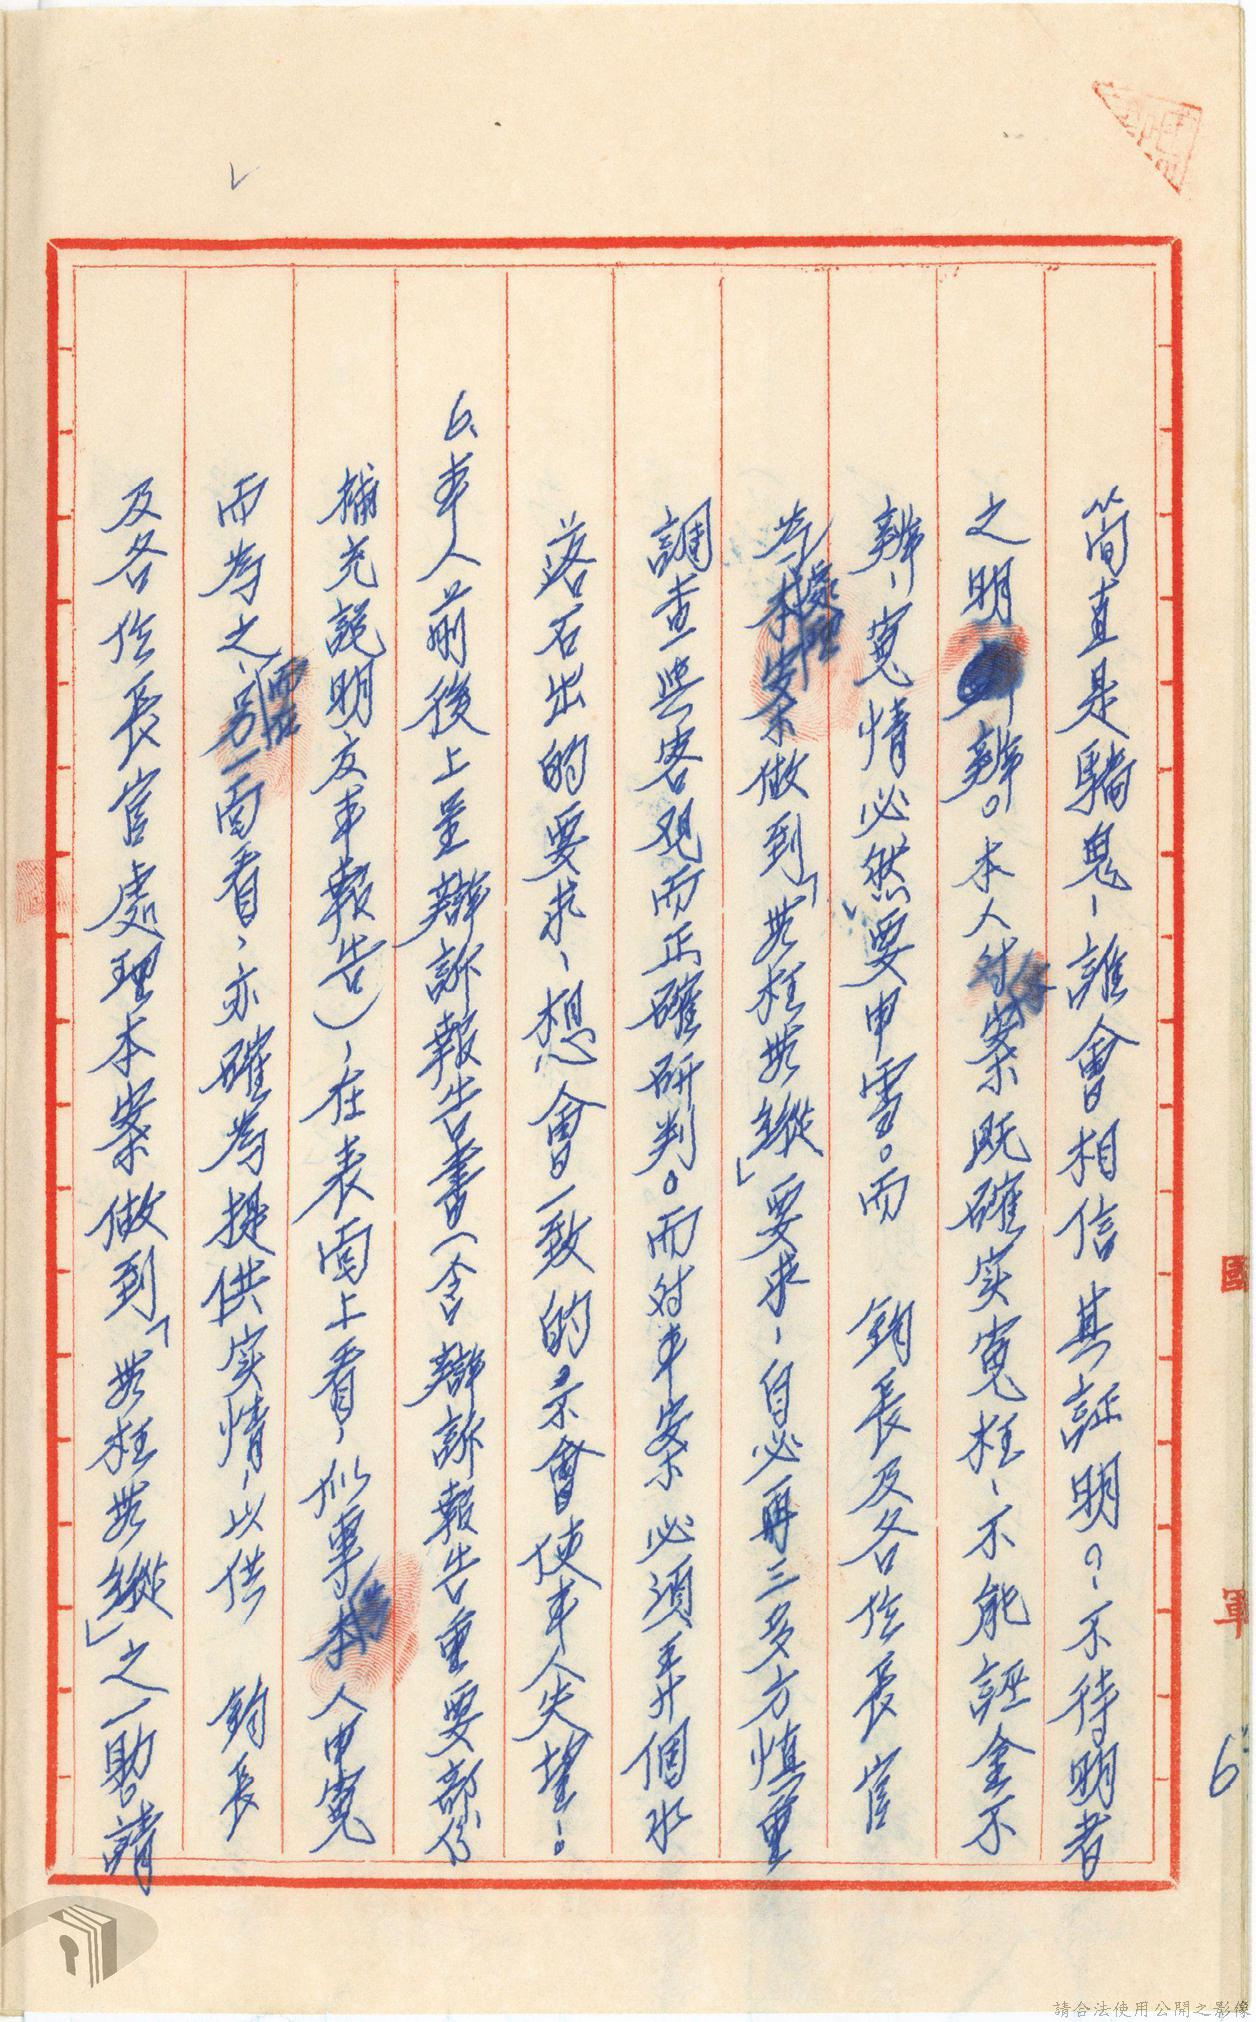 簡直是騙鬼、誰會相信其証明？、不待明者
之明辨。本人对本案既確实寃枉、不能誣金不
辨、寃情必然要申雪。而　鈞長及各位長官
為處理本案做到「無枉無縱」要求、自必再三多方慎重
調查與客观而正確研判。而对本案必須弄個水
落石出的要求、想會一致的。不會使本人失望、。
6、本人前後上呈辯訴報告書（含辯訴報告重要部份
補充說明及本報告）、在表面上看、似專為本人申寃
而為之、而在另一面看、亦確為提供实情、以供　鈞長
及各位長官處理本案做到「無枉無縱」之一助。請
6
國
軍
請合法使用公開之影像